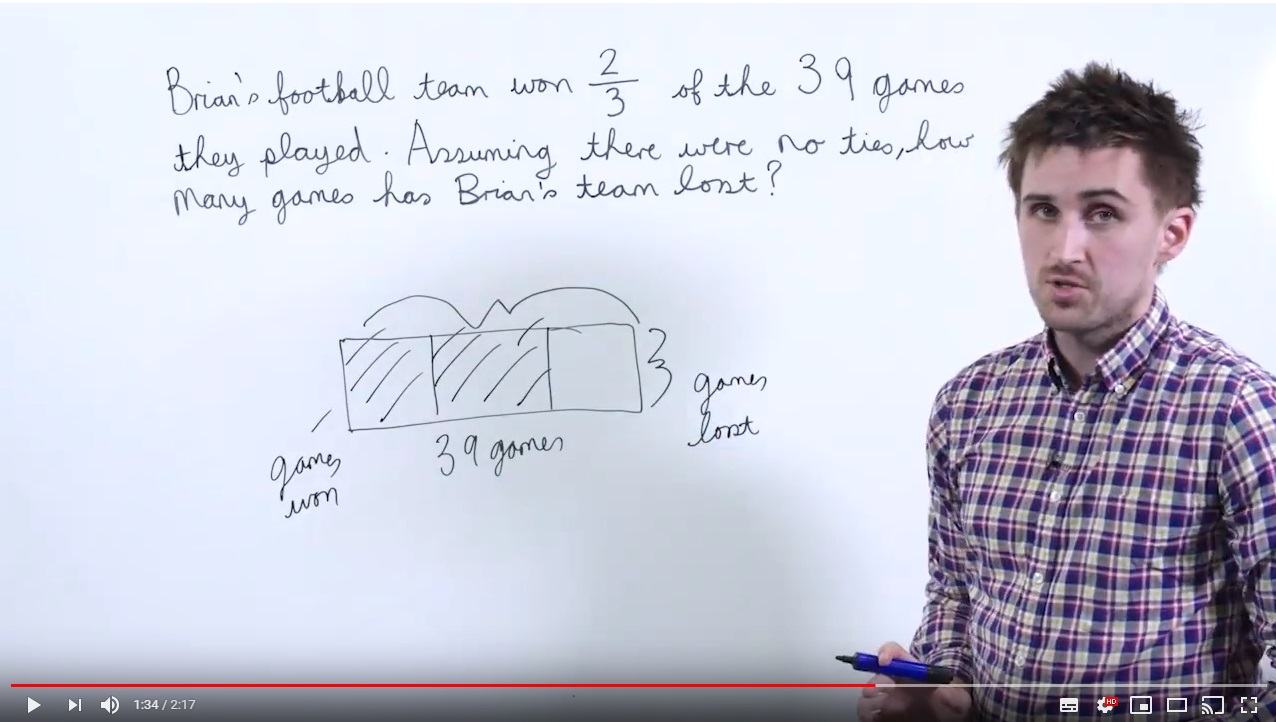 Brian's football team won 2/3 of the 39 games
they played. Assuming there were no ties, how
many games has Brian's team lost?
games
lost
39 games
games
won
1:34 / 2:17
HD